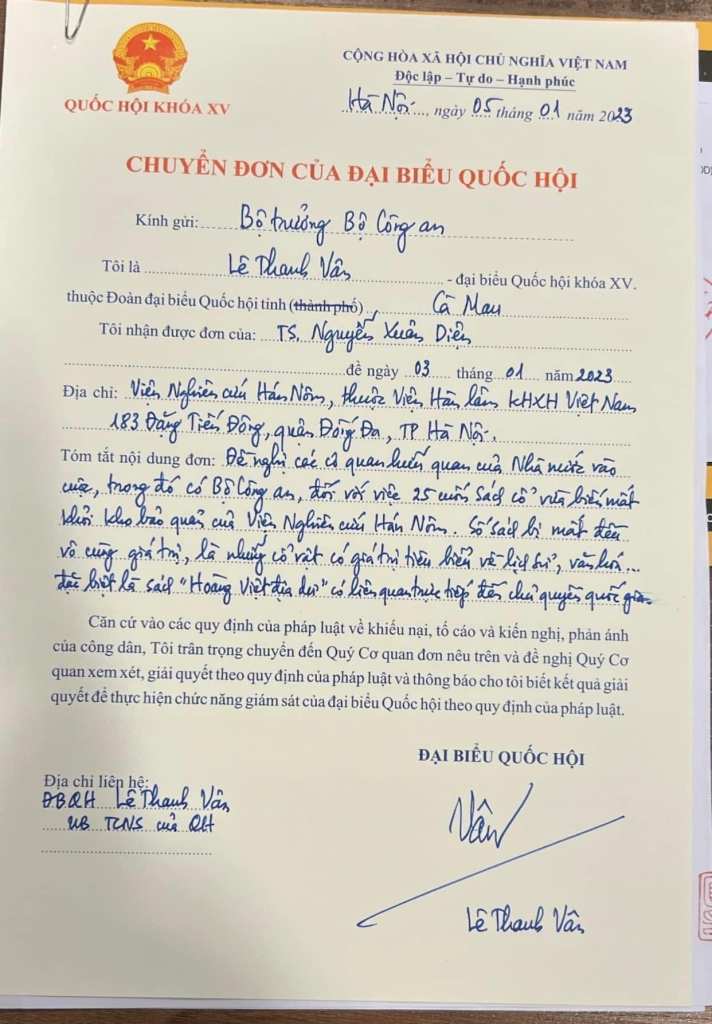 CỘNG HÒA XÃ HỘI CHỦ NGHĨA VIỆT NAM
Độc lập – Tự do – Hạnh phúc
QUỐC HỘI KHÓA XV
Hà Nội, ngày 05 tháng 01 năm 2023
CHUYỂN ĐƠN CỦA ĐẠI BIỂU QUỐC HỘI
Kính gửi: Bộ trưởng Bộ Công an
Tôi là Lê Thanh Vân - đại biểu Quốc hội khóa XV.
thuộc Đoàn đại biểu Quốc hội tỉnh (thành phố), Cà Mau
Tôi nhận được đơn của: TS. Nguyễn Xuân Diện
đề ngày 03 tháng 01 năm 2023
Địa chỉ: Viện Nghiên cứu Hán Nôm, thuộc Viện Hàn lâm KHXH Việt Nam
183 Đặng Tiến Đông, quận Đống Đa, TP Hà Nội.
Tóm tắt nội dung đơn: Đề nghị các cơ quan hữu quan của Nhà nước vào
cuộc, trong đó có Bộ Công an, đối với việc 25 cuốn sách cổ vừa biến mất
khỏi kho bảo quản của Viện Nghiên cứu Hán Nôm. Số sách bị mất đều
vô cùng giá trị, là những cổ vật có giá trị tiêu biểu về lịch sử, văn hóa...
đặc biệt là sách "Hoàng Việt địa dư" có liên quan trực tiếp đến chủ quyền quốc gia.
Căn cứ vào các quy định của pháp luật về khiếu nại, tố cáo và kiến nghị, phản ánh
của công dân, Tôi trân trọng chuyển đến Quý Cơ quan đơn nêu trên và đề nghị Quý Cơ
quan xem xét, giải quyết theo quy định của pháp luật và thông báo cho tôi biết kết quả giải
quyết để thực hiện chức năng giám sát của đại biểu Quốc hội theo quy định của pháp luật.
ĐẠI BIỂU QUỐC HỘI
Địa chỉ liên hệ:
ĐBQH Lê Thanh Vân
UB TCNS của QH
Vân
Lê Thanh Vân